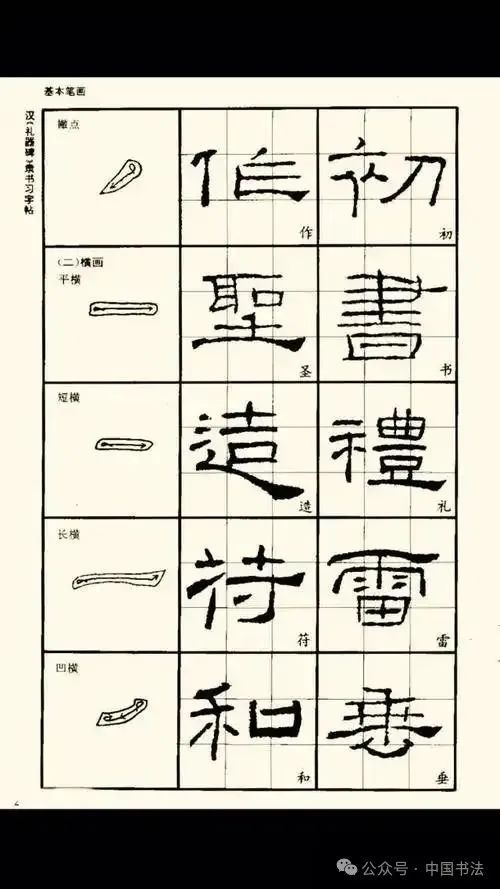 基本笔画
汉《礼器碑》隶书习字帖
撇点
作 作
初 初
(二)横画
平横
聖 圣
書 书
短横
造 造
禮 礼
长横
符 符
雷 雷
凹横
和 和
垂 垂
公众号·中国书法